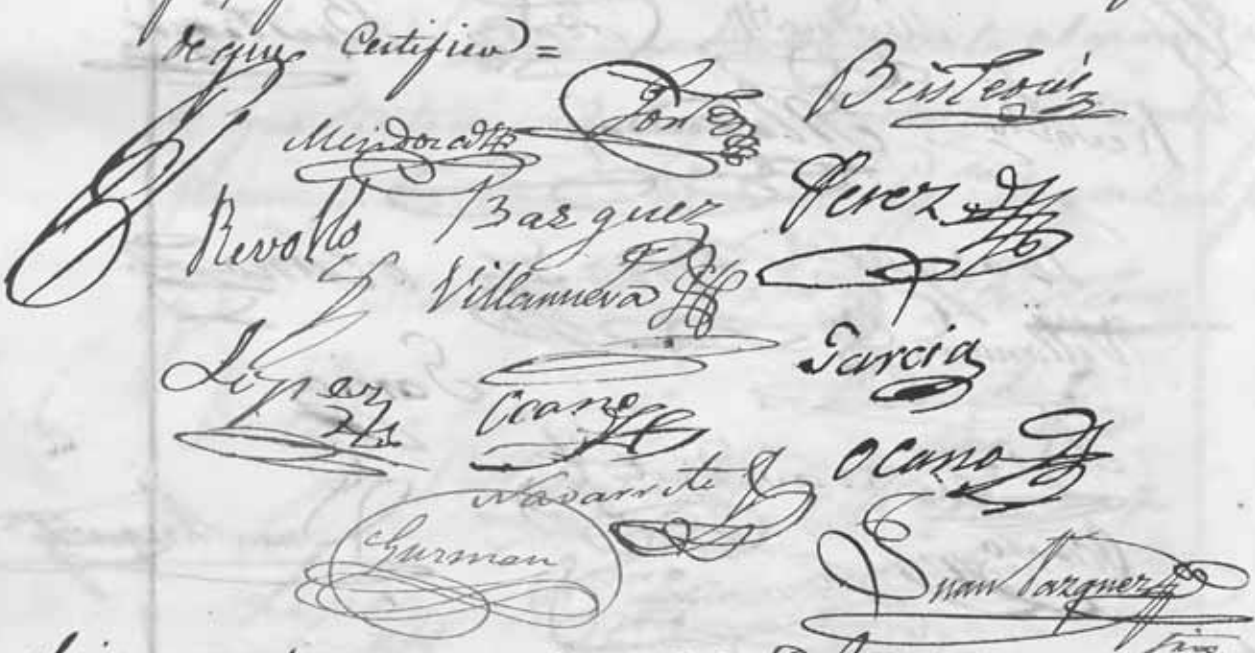 de que Certifico =
Mendoza
Revollo Bazquez Perez
Villanueva
Lopez Garcia
Ocano Ocano
Navarrete
Guzman Juan Vazquez